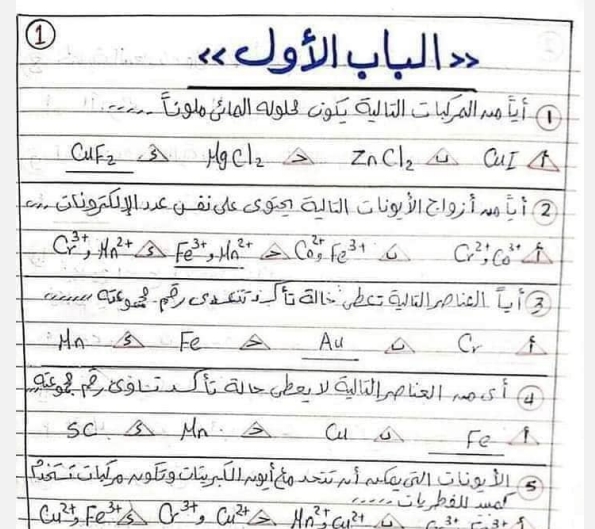 1
<< الباب الأول >>
1 أياً من المركبات التالية يكون محلوله المائى ملوناً......
أ CuI ب ZnCl2 ج MgCl2 د CuF2
2 أياً من أزواج الأيونات التالية يحتوى على نفس عدد الإلكترونات ...
أ Cr2+, Co3+ ب Co2+, Fe3+ ج Fe3+, Mn2+ د Cr3+, Mn2+
3 أياً العناصر التالية تعطى حالة تأكسد تتعدى رقم مجموعته ......
أ Cr ب Au ج Fe د Mn
4 أى من العناصر التالية لا يعطى حالة تأكسد تساوى رقم مجموعته..
أ Fe ب Cu ج Mn د SC
5 الأيونات التى يمكن أن تتحد مع أيون الكبريتات وتكون مركبات تستخدم
كمبيد للفطريات ......
ب Mn2+, Cu2+ ج Cr3+, Cu2+ د Cu2+, Fe3+